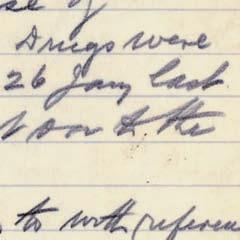 se of
Drugs were
26 Jany last
to the
to with referen